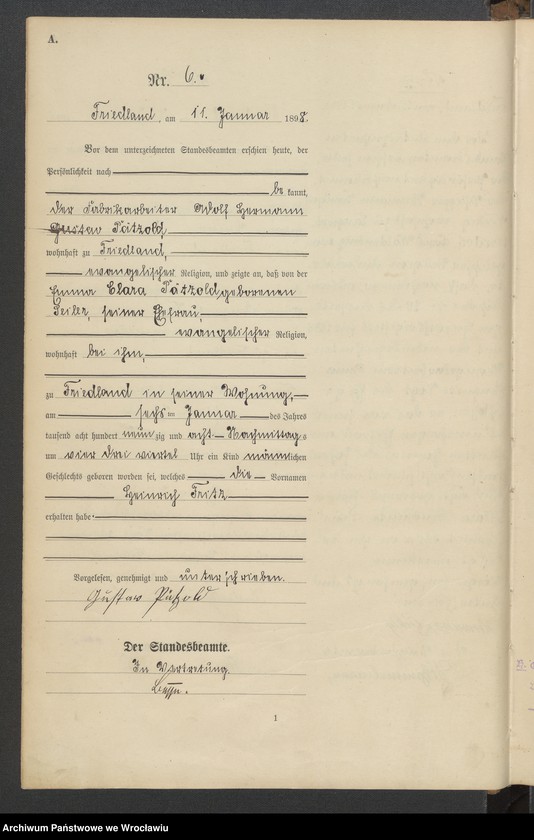 A.
Nr. 6.
Friedland, am 11. Januar 1898.
Vor dem unterzeichneten Standesbeamten erschien heute, der
Persönlichkeit nach
be kannt,
der Fabrikarbeiter Adolf Hermann
Gustav Pätzold,
wohnhaft zu Friedland,
evangelischer Religion, und zeigte an, daß von der
Emma Clara Pätzold geborenen
Seiler, seiner Ehefrau,
evangelischer Religion,
wohnhaft bei ihm,
zu Friedland in seiner Wohnung,
am sechsten Januar des Jahres
tausend acht hundert neunzig und acht Nachmittags
um vier drei viertel Uhr ein Kind männlichen
Geschlechts geboren worden sei, welches die Vornamen
Heinrich Fritz
erhalten habe.
Vorgelesen, genehmigt und unterschrieben.
Gustav Pätzold
Der Standesbeamte.
In Vertretung.
1
Archiwum Państwowe we Wrocławiu